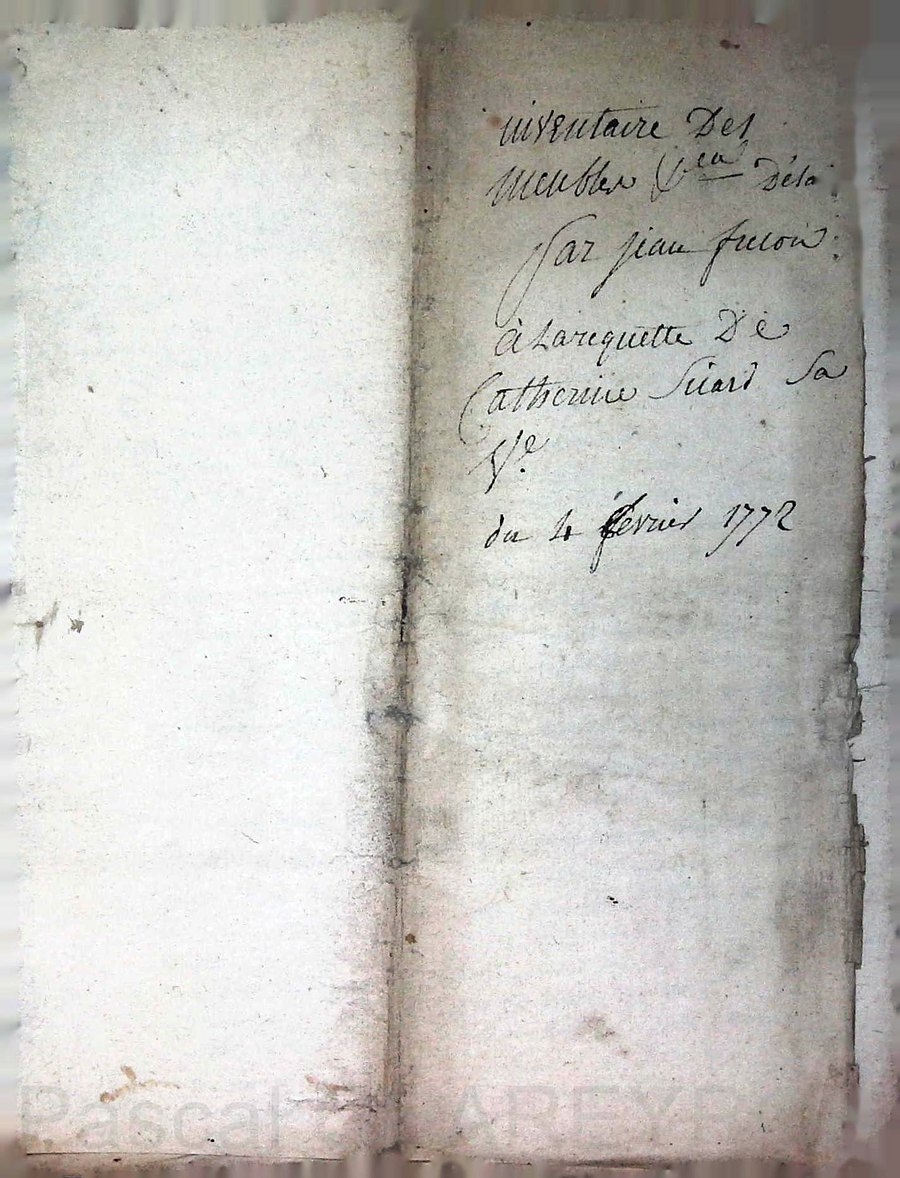 inventaire Des
Meubles & ea Déla
par jean
a Larequette De
Catherine Suard Sa
Ve.
du 4 fevrier 1772
Pascal